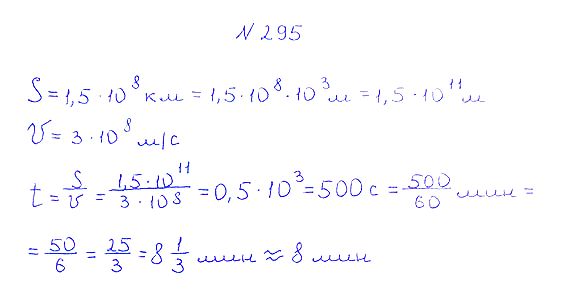 N 295
S = 1,5 · 10⁸ км = 1,5 · 10⁸ · 10³ м = 1,5 · 10¹¹ м
V = 3 · 10⁸ м/с
t = S/V = 1,5 · 10¹¹/3 · 10⁸ = 0,5 · 10³ = 500 с = 500/60 мин =
= 50/6 = 25/3 = 8 1/3 мин ≈ 8 мин